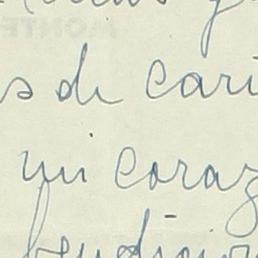 s de cari
mi coraz
bendicion